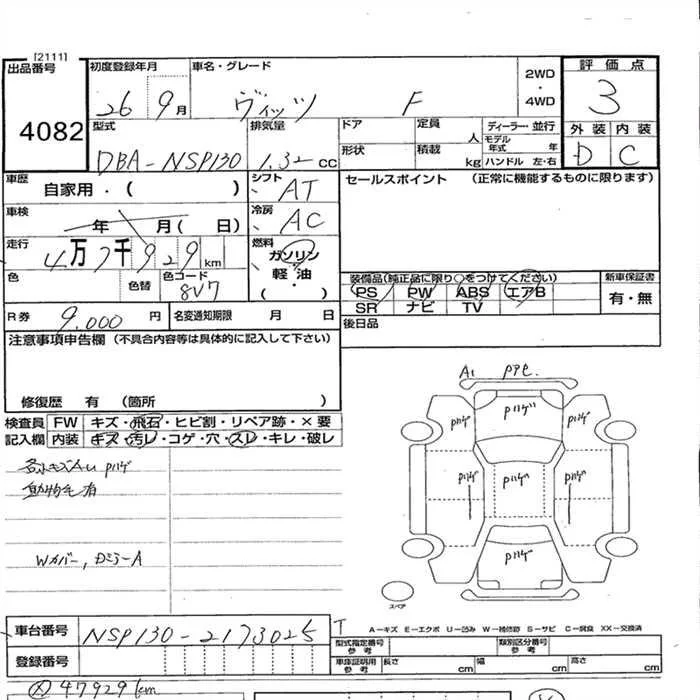 [2111]
出品番号 初度登録年月 車名・グレード 2WD ・ 4WD 評価点
4082 26 9月 ヴィッツ F 3
型式 排気量 ドア 定員 人 ディーラー・並行 外装 内装
DBA-NSP130 1.3 CC 形状 積載 kg モデル年式 年 ハンドル 左・右 D C
車歴 自家用・( ) シフト AT セールスポイント (正常に機能するものに限ります)
車検 年 月( 日) 冷房 AC
走行 4万7千929km 燃料 ガソリン・軽油 ( )
色 色替 色コード 8V7
装備品(純正品に限り○をつけてください) 新車保証書
PS PW ABS エアB 有・無
SR ナビ TV
R券 9.000円 名変通知期限 月 日 後日品
注意事項申告欄 (不具合内容等は具体的に記入して下さい)
修復歴 有 (箇所 )
検査員記入欄 FW キズ・飛石・ヒビ割・リペア跡・×要
内装 キズ・汚レ・コゲ・穴・スレ・キレ・破レ
A1
Pハゲ
Pハゲ Pハゲ
Pハゲ Pハゲ Pハゲ
Pハゲ
動物毛有
Wカバー,
スペア
A-キズ E-エクボ U-凹み W-補修跡 S-サビ C-腐食 XX-交換済
車台番号 NSP130-2173025 T
登録番号
型式指定番号 参考 類別区分番号 参考
車庫証明用 参考 長さ cm 幅 cm 高さ cm
47929km